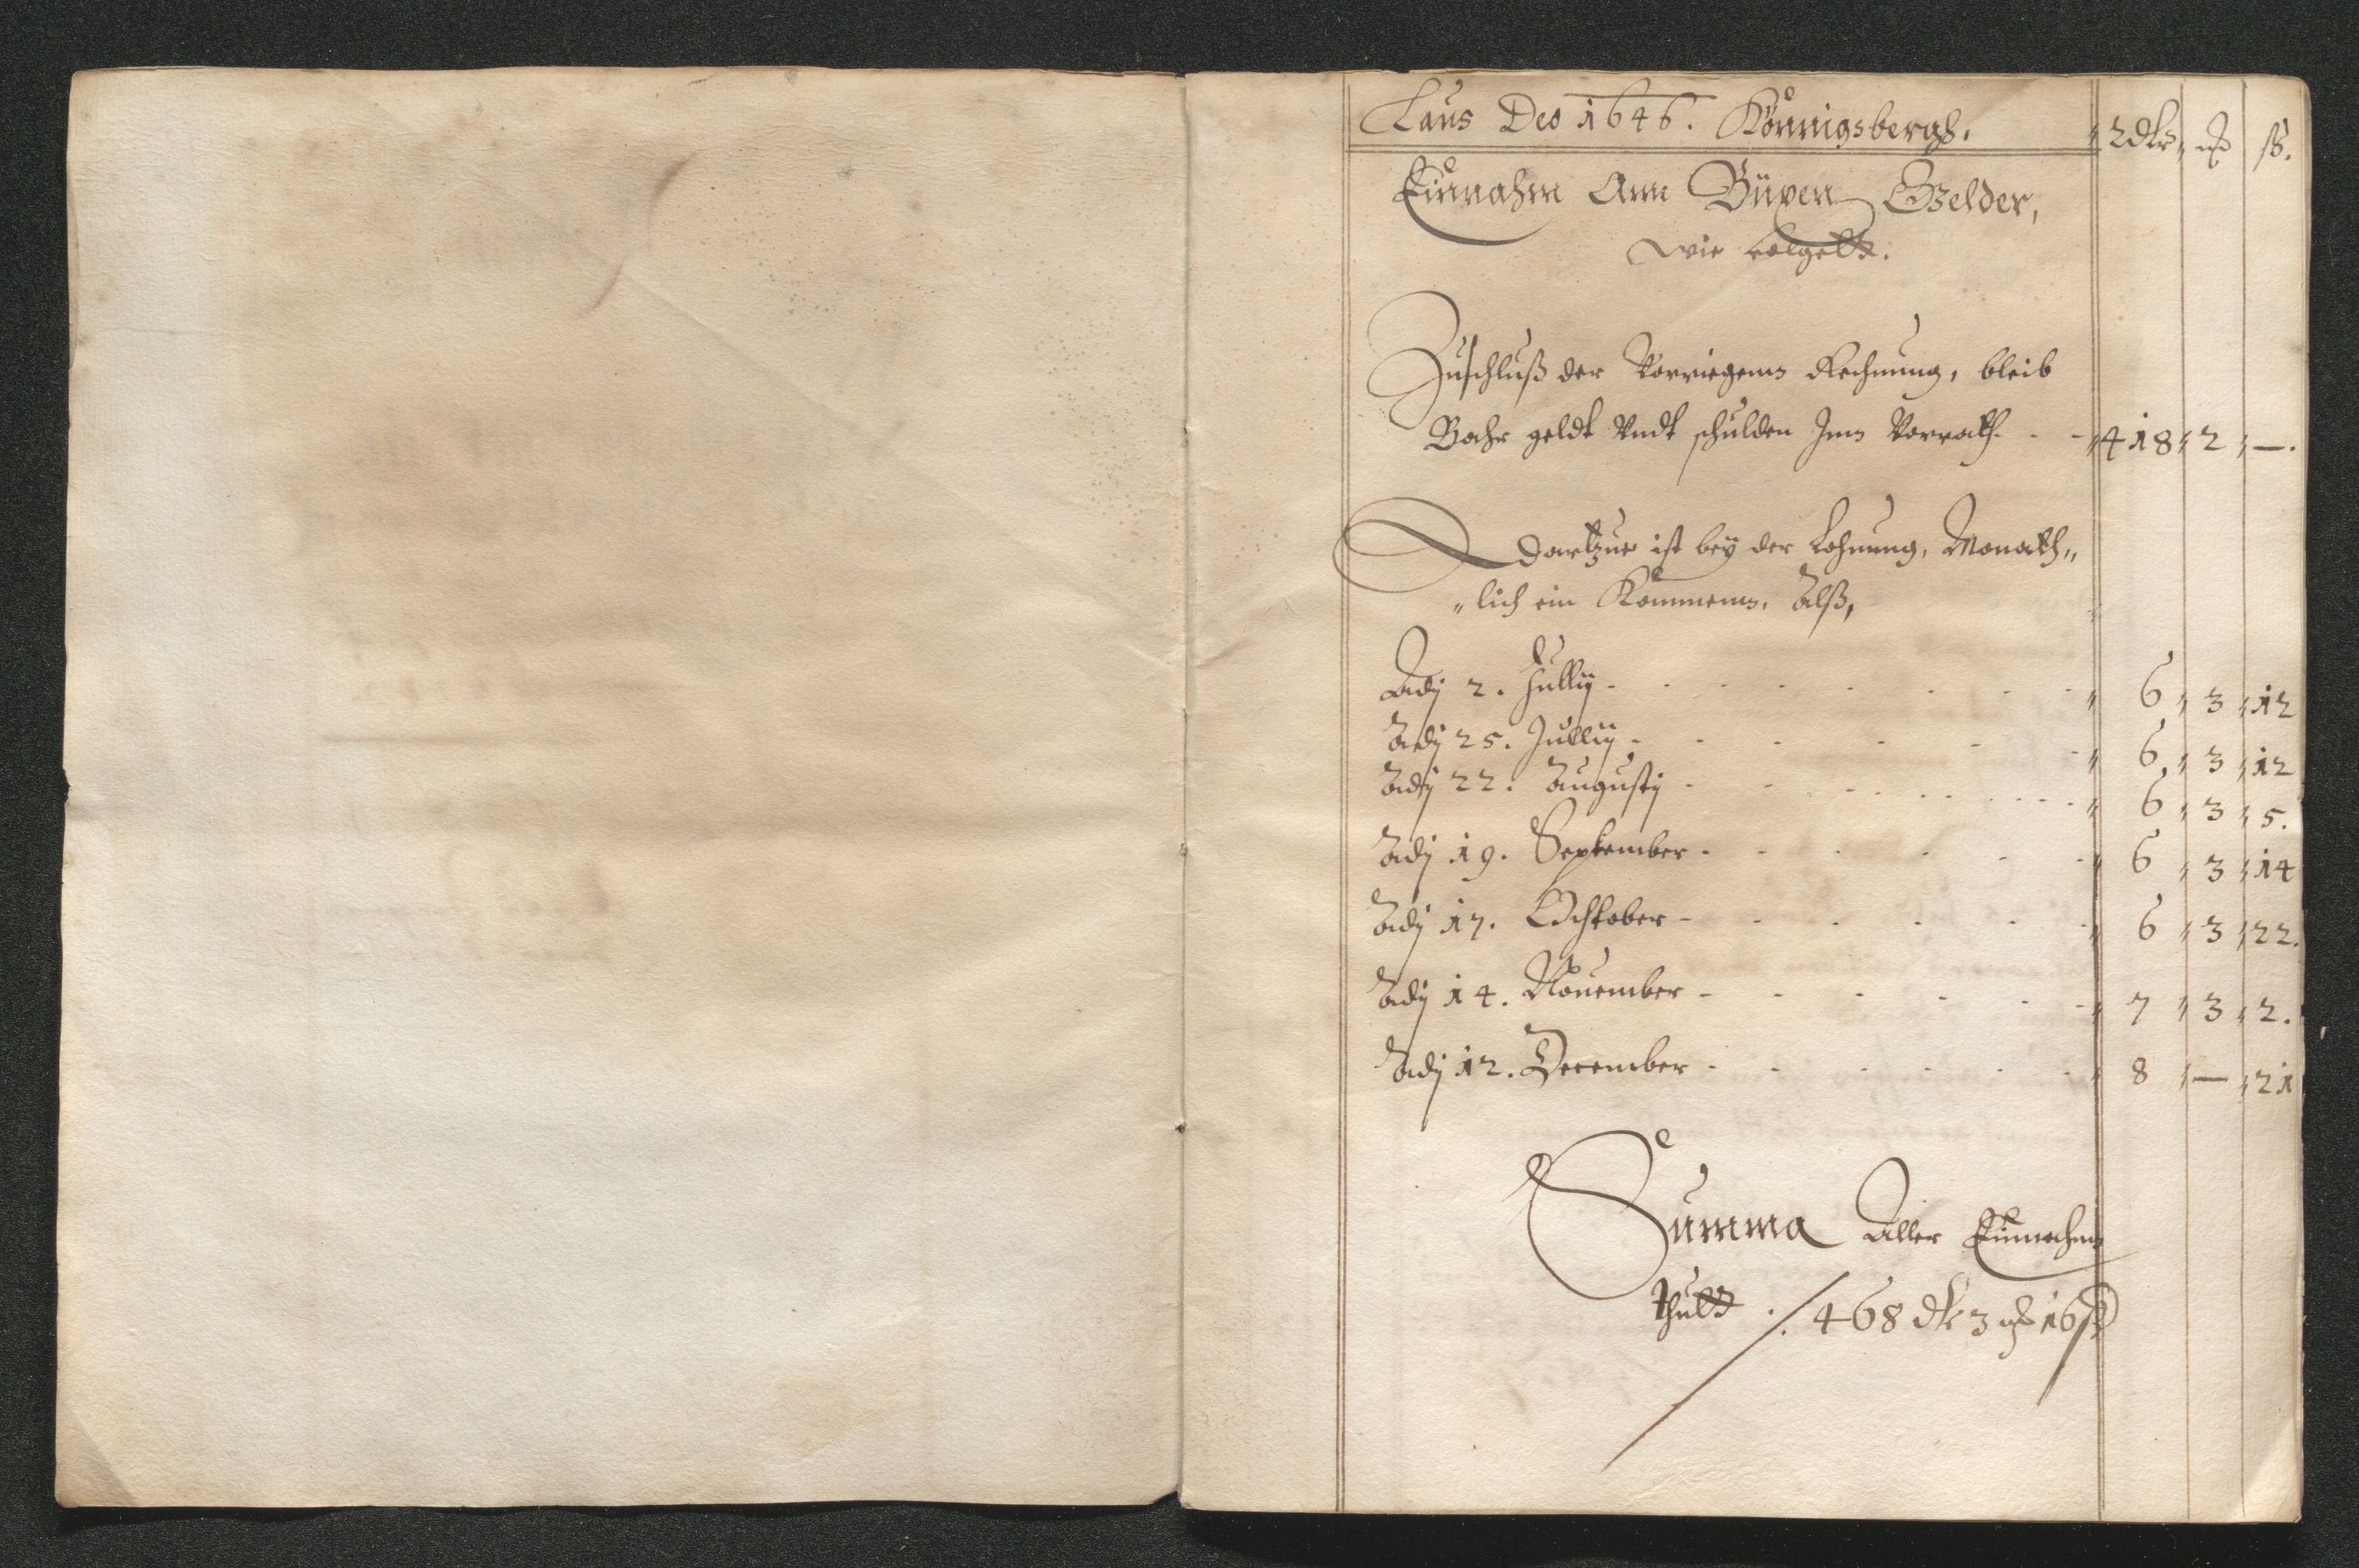 Laus Deo 1646. Königsbergh. Rdlr ort ß.
Einnahm Ann Büxen Gelder,
wie volgett.
Zuschluß der Vorriegenn Rechnung, bleib
Bahr geldt Vndt schulden Inn Vorrath - - 418 2 —.
Dartzue ist bey der Lohnung, Monath„
„lich ein Kommenn. Alß,
Adj 2. Jullij - 6 3 12
Adj 25. Jullij - 6 3 12
Adj 22. Augustj - 6 3 5.
Adj 19. September - 6 3 14
Adj 17. Ochtober - 6 3 22.
Adj 14. Nouember - 7 3 2.
Adj 12. December - 8 — 21
Summa Aller Einnahm
thutt ./. 468 dlr 3 ort 16 ß